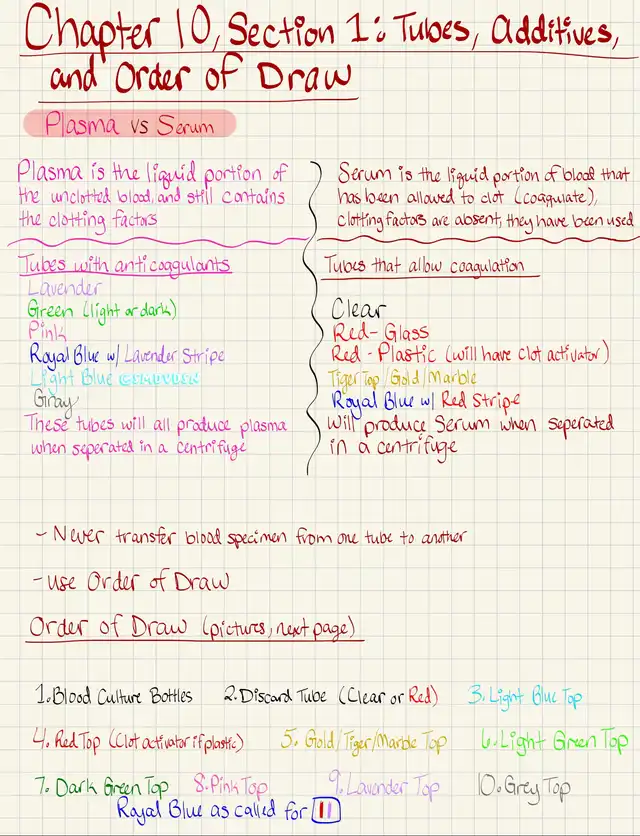 Chapter 10, Section 1: Tubes, Additives,
and Order of Draw
Plasma vs Serum
Plasma is the liquid portion of
the unclotted blood, and still contains
the clotting factors
Tubes with anticoagulants
Lavender
Green (light or dark)
Pink
Royal Blue w/ Lavender Stripe
Light Blue
Gray
These tubes will all produce plasma
when seperated in a centrifuge
Serum is the liquid portion of blood that
has been allowed to clot (coagulate),
clotting factors are absent, they have been used
Tubes that allow coagulation
Clear
Red-Glass
Red-Plastic (will have clot activator)
Tiger Top/Gold/Marble
Royal Blue w/ Red Stripe
Will produce Serum when seperated
in a centrifuge
- Never transfer blood specimen from one tube to another
- use Order of Draw
Order of Draw (pictures, next page)
1. Blood Culture Bottles 2. Discard Tube (Clear or Red) 3. Light Blue Top
4. Red Top (Clot activator if plastic) 5. Gold/Tiger/Marble Top 6. Light Green Top
7. Dark Green Top 8. Pink Top 9. Lavender Top 10. Grey Top
Royal Blue as called for